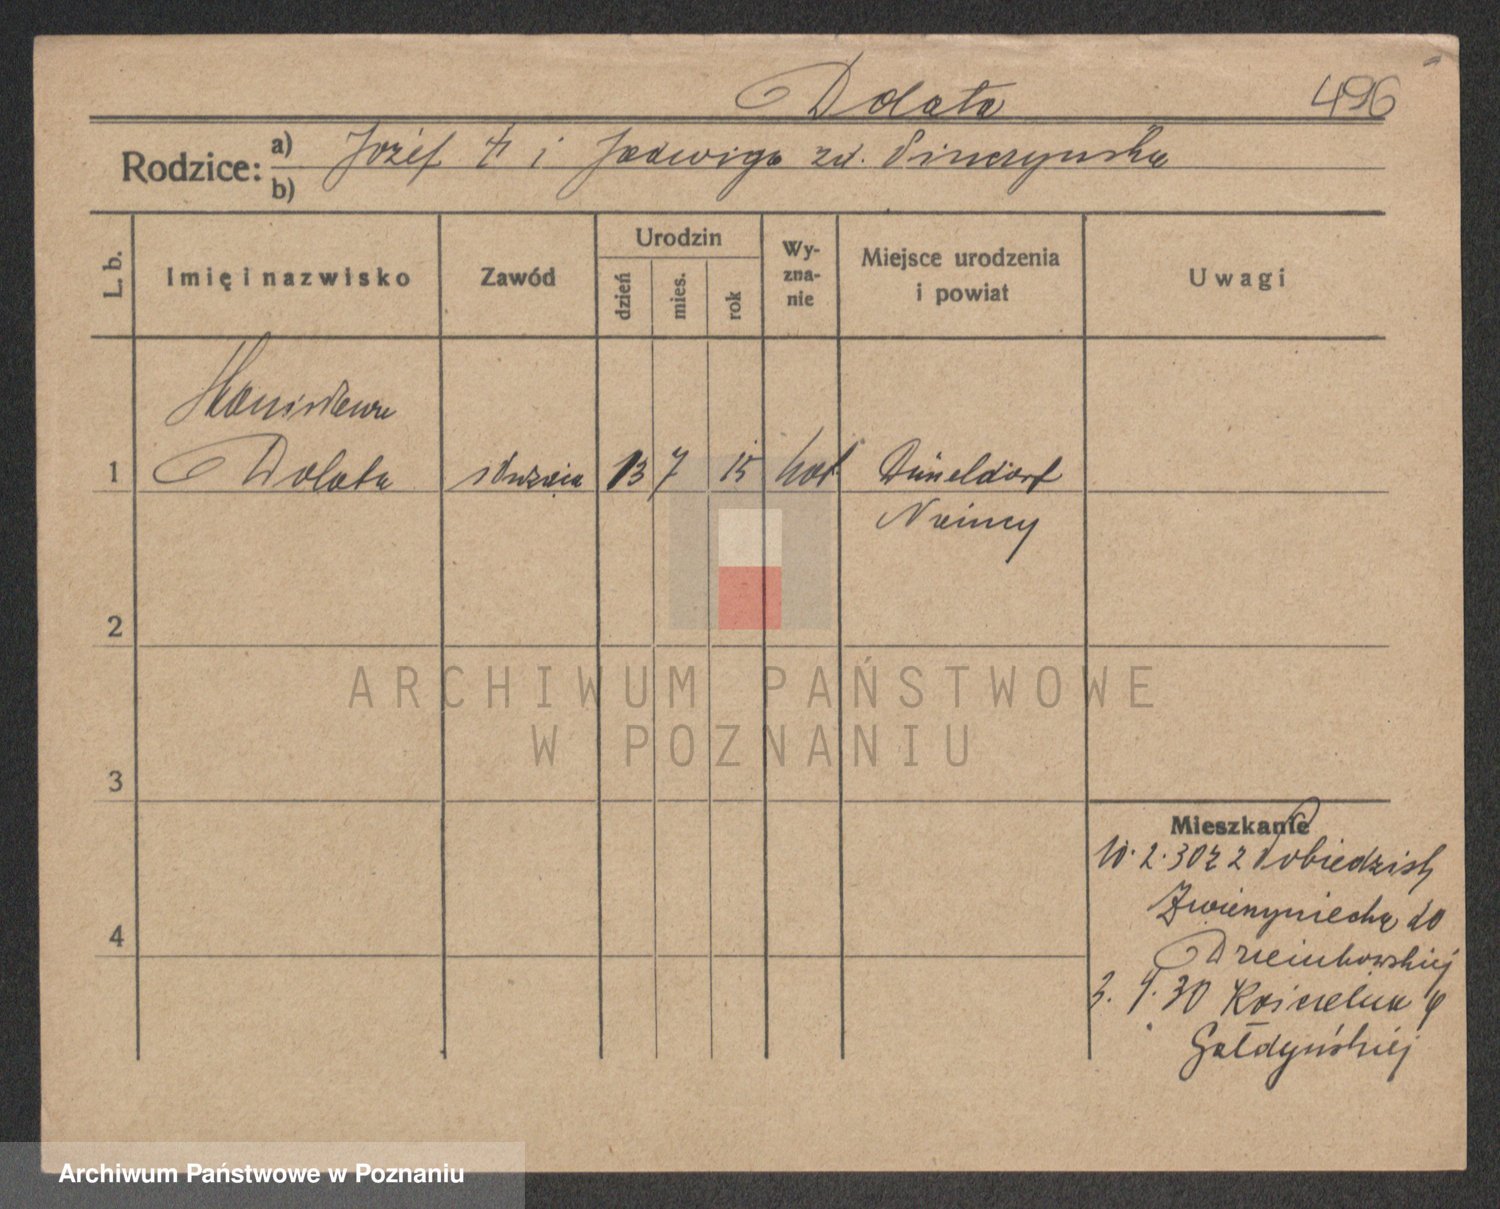 Dolata 496
Rodzice: a) Józef i Jadwiga zd.
b)
L. b.
Imię i nazwisko
Zawód
Urodzin
dzień
mies.
rok
Wy-
zna-
nie
Miejsce urodzenia
i powiat
Uwagi
Stanisława
1 Dolata służąca 13 7 15 kat Düseldorf
Niemcy
2
3
4
Mieszkanie
10.2.30 z Pobiedzisk
Zwierzyniecka 10
3. 9. 30 Kościelna 4
Gałdyńskiej
ARCHIWUM PAŃSTWOWE
W POZNANIU
Archiwum Państwowe w Poznaniu